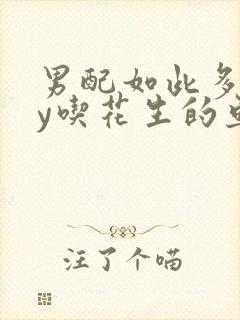 男配如此多
y喫花生的
汪了个喵